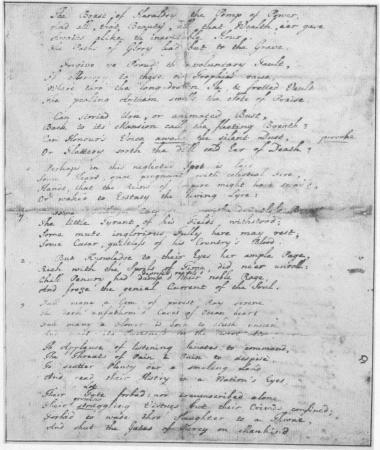 The Boast of Heraldry the Pomp of Power,
And all, that Beauty, all that Wealth, e'er gave
Awaits alike th' inevitable Hour.
The Paths of Glory lead but to the Grave.
Forgive ye Proud th' involuntary Fault,
If Memory to these no Trophies raise,
Where thro' the long-drawn Ile, & fretted Vault
The pealing Anthem swells the Note of Praise
Can storied Urn, or animated Bust,
Back to its Mansion call the fleeting Breath?
Can Honour's Voice awake the silent Dust, provoke
Or Flattery sooth the dull cold Ear of Death?
Perhaps in this neglected Spot is laid
Some Heart, once pregnant with celestial Fire,
Hands, that the Reins of Empire might have sway'd,
Or waked to Ecstasy the living Lyre:
Some
The little Tyrant of his Fields withstood;
Some mute inglorious Tully here may rest;
Some Caesar, guiltless of his Country's Blood.
But Knowledge to their Eyes her ample Page,
Rich with the Spoils of Time, did ne'er unroll:
Chill Penury had damp'd their noble Rage
depress'd repress'd
And froze the genial Current of the Soul.
Full many a Gem of purest Ray serene
The dark unfathom'd Caves of Ocean bear.
Full many a Flower is born to blush unseen
And
Th' Applause of listening Senates to command,
The Threats of Pain & Ruin to despise
To scatter Plenty o'er a smiling Land
And read their History in a Nation's Eyes
Their Fate forbad: nor circumscribed alone
Their struggling Virtues but their Crimes confined;
growing
Forbad to wade thro' Slaughter to a Throne,
And shut the Gates of Mercy on Mankind